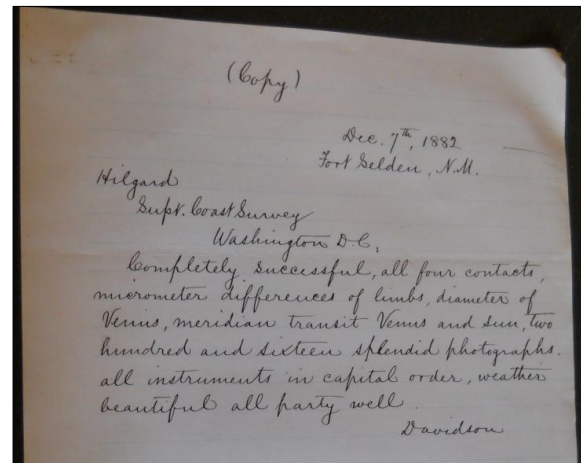 (Copy)
Dec. 7th, 1882
Fort Selden, N.M.
Hilgard
Supt. Coast Survey
Washington D.C.
Completely successful, all four contacts,
micrometer differences of limbs, diameter of
Venus, meridian transit Venus and Sun, two
hundred and sixteen splendid photographs.
all instruments in capital order, weather
beautiful all party well.
Davidson